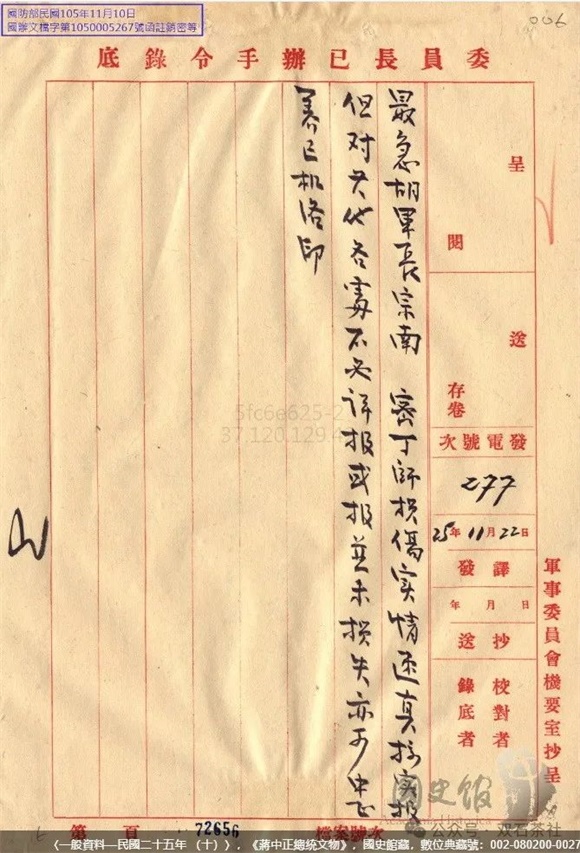 國防部民國105年11月10日
國辦文檔字第1050005267號函註銷密等
006
委員長已辦手令錄底
呈閱
送存卷
發電號次
277
25年11月22日
譯發
年月日
抄送
校對者
錄底者
軍事委員會機要室抄呈
最急胡軍長宗南 密丁師損傷实情报
但对其他各處不必详报或报並未損失亦可中正
养巳机洛印
5fc6e625-2
37.120.129.4
檔案號次
72656
第 頁
國史館
公众号·双石茶社
《一般資料—民國二十五年（十）》，《蔣中正總統文物》，國史館藏，數位典藏號：002-080200-0027